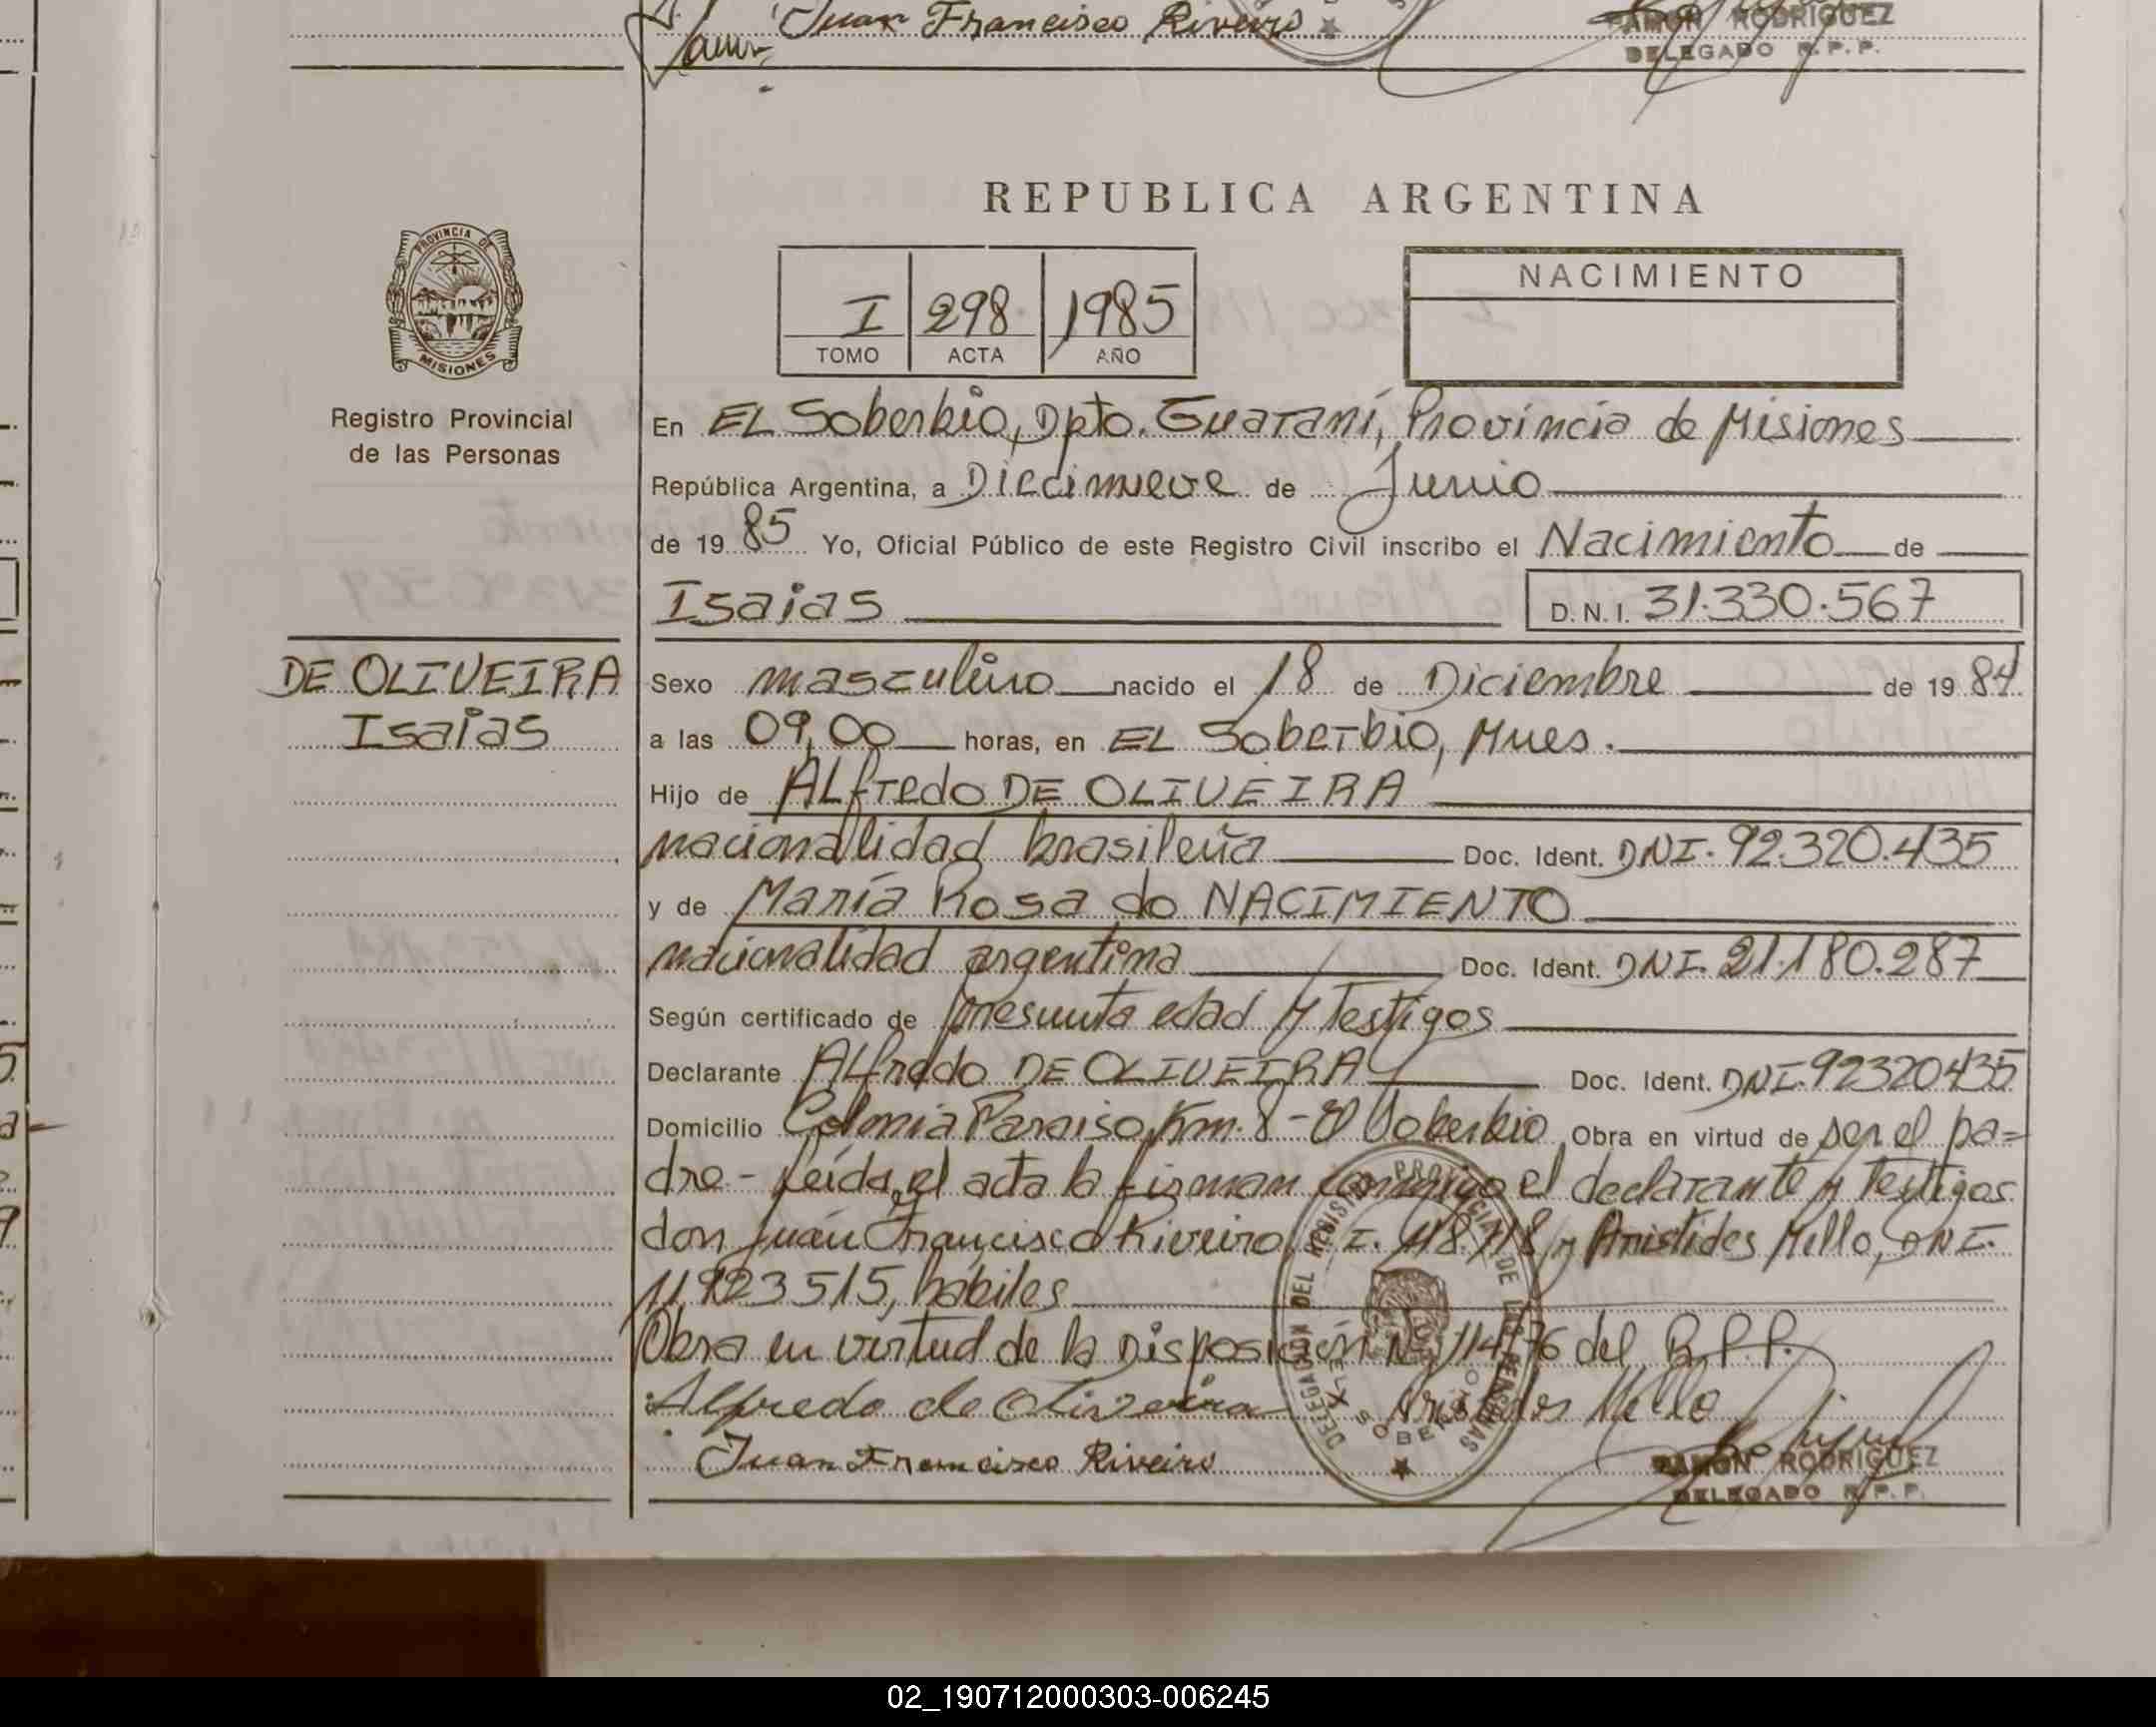 Juan Francisco Riveiro
RAMON RODRIGUEZ
DELEGADO R.P.P.
REPUBLICA ARGENTINA
PROVINCIA DE
MISIONES
Registro Provincial
de las Personas
I 298 1985
TOMO ACTA AÑO
NACIMIENTO
En EL Soberbio, Dpto. Guaraní, Provincia de Misiones
República Argentina, a Diecinueve de Junio
de 19 85 Yo, Oficial Público de este Registro Civil inscribo el Nacimiento de
Isaias D.N.I. 31.330.567
DE OLIVEIRA
Isaias
Sexo masculino nacido el 18 de Diciembre de 19 84
a las 09,00 horas, en EL Soberbio, Mnes.
Hijo de ALfredo DE OLIVEIRA
nacionalidad brasileña Doc. Ident. DNI. 92.320.435
y de María Rosa do NACIMIENTO
nacionalidad argentina Doc. Ident. DNI. 21.180.287
Según certificado de presunta edad y testigos
Declarante ALfredo DE OLIVEIRA Doc. Ident. DNI. 92320435
Domicilio Colonia Paraiso, Km. 8 - El Soberbio Obra en virtud de ser el pa=
dre - Leída el acta la firman conmigo el declarante y testigos
don Juan Francisco Riveiro, y Aristides Mello, DNI.
11923515, hábiles
Obra en virtud de la Disposición Nº 114/76 del R.P.P.
Alfredo de Oliveira Aristides Mello
Juan Francisco Riveiro
RAMON RODRIGUEZ
DELEGADO R.P.P.
DELEGACION DEL REGISTRO PROVINCIAL DE LAS PERSONAS
EL SOBERBIO
02_190712000303-006245